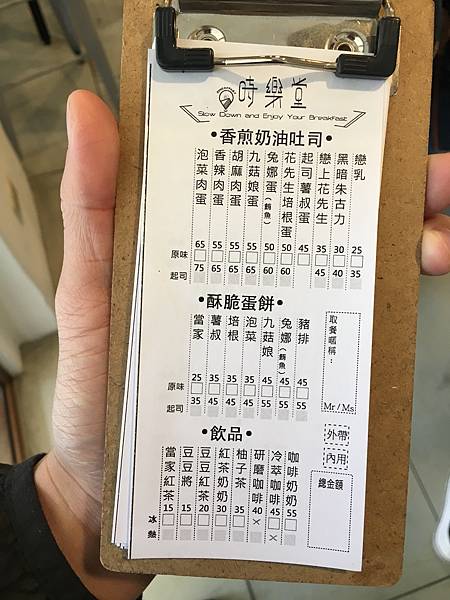 時樂堂
Slow Down and Enjoy Your Breakfast
•香煎奶油吐司•
戀乳
黑暗朱古力
戀上花先生
起司薯叔蛋
花先生培根蛋
兔娜蛋(鮪魚)
九菇娘蛋
胡麻肉蛋
香辣肉蛋
泡菜肉蛋
65 55 55 55 50 50 45 35 30 25
原味
起司
75 65 65 65 60 60 45 40 35
•酥脆蛋餅•
豬排
兔娜(鮪魚)
九菇娘
泡菜
培根
薯叔
當家
25 35 35 35 45 45 45
原味
起司
35 45 45 45 55 55 55
取餐暱稱:
Mr / Ms
•飲品•
咖啡奶奶
冷萃咖啡
研磨咖啡
柚子茶
紅茶奶奶
豆豆紅茶
豆豆將
當家紅茶
15 15 20 30 35 40 45 55
冰
熱
外帶
內用
總金額